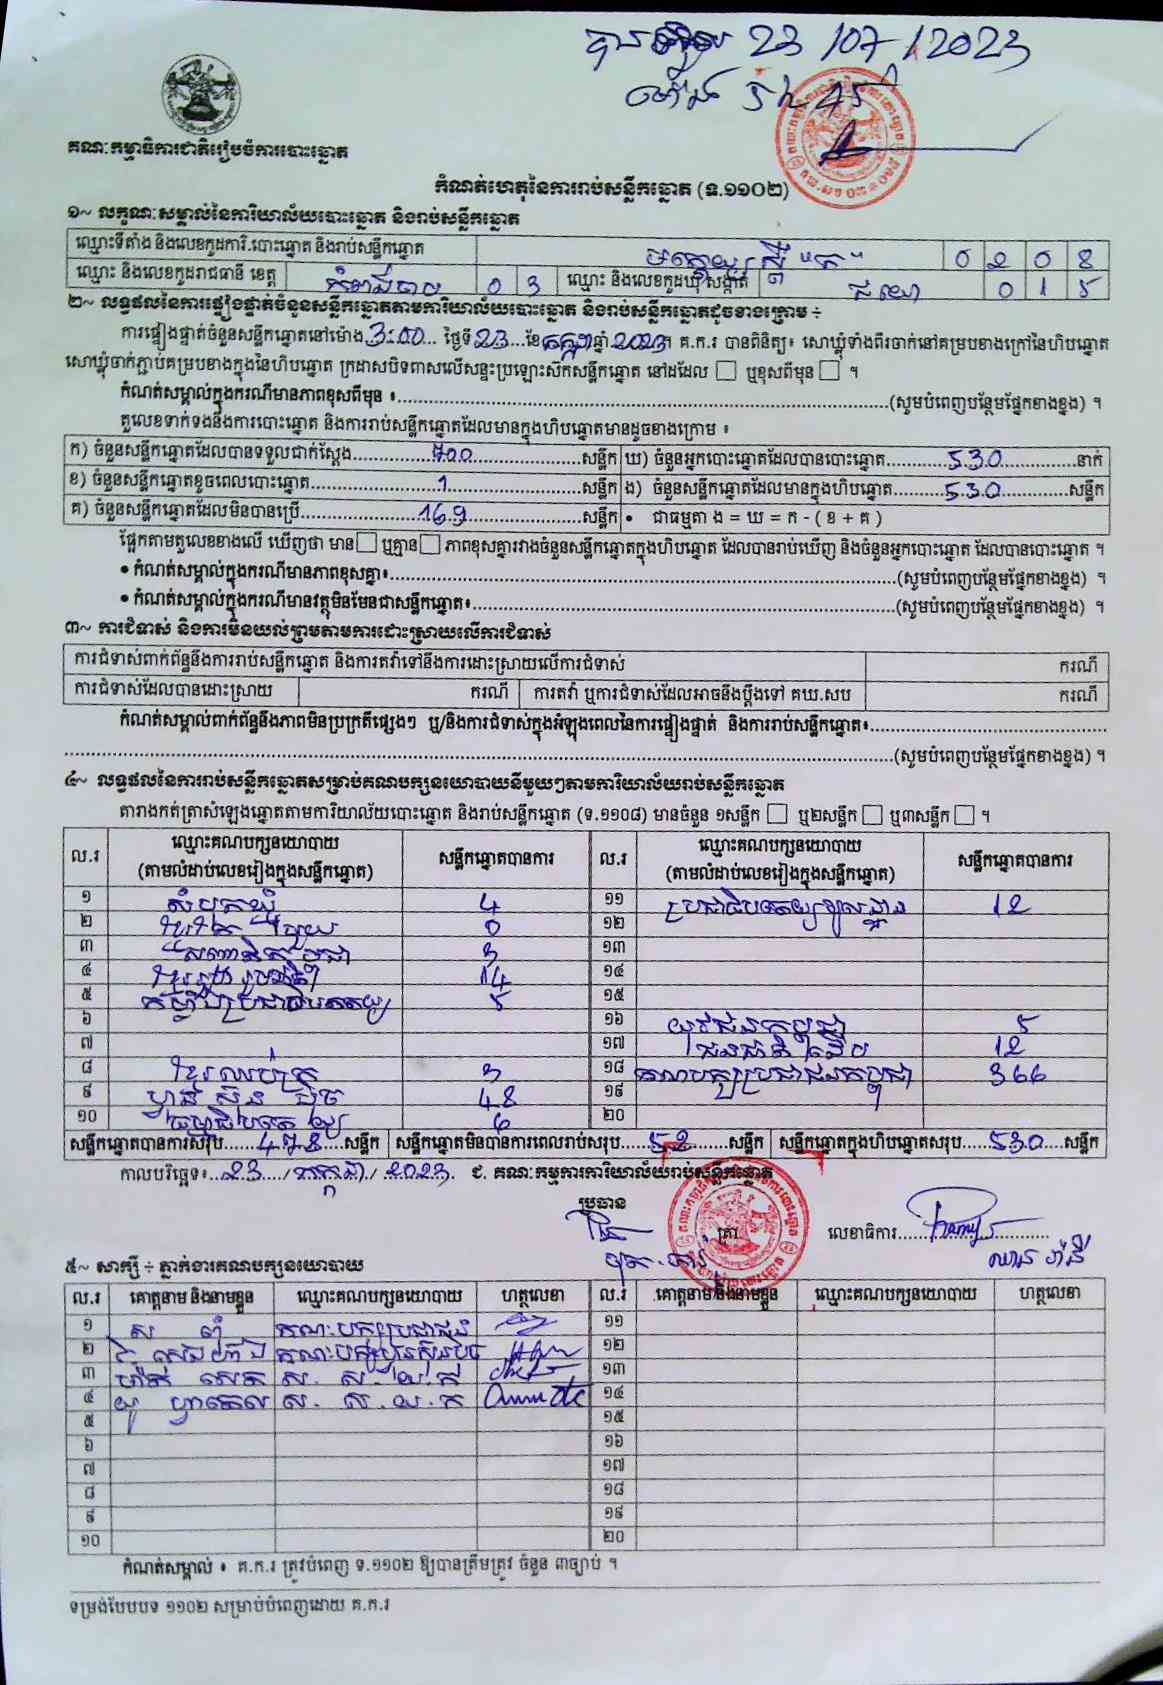 បានទទួល 23/07/2023
ម៉ោង
គណៈកម្មាធិការជាតិរៀបចំការបោះឆ្នោត
កំណត់ហេតុនៃការរាប់សន្លឹកឆ្នោត (ទ.១១០២)
១~ លក្ខណៈសម្គាល់នៃការិយាល័យបោះឆ្នោត និងរាប់សន្លឹកឆ្នោត
ឈ្មោះទីតាំង និងលេខកូដការិ.បោះឆ្នោត និងរាប់សន្លឹកឆ្នោត "ក" 0208
ឈ្មោះ និងលេខកូដរាជធានី ខេត្ត កំពង់ចាម 03 ឈ្មោះ និងលេខកូដឃុំ សង្កាត់ 015
២~ លទ្ធផលនៃការផ្ទៀងផ្ទាត់ចំនួនសន្លឹកឆ្នោតតាមការិយាល័យបោះឆ្នោត និងរាប់សន្លឹកឆ្នោតដូចខាងក្រោម ÷
ការផ្ទៀងផ្ទាត់ចំនួនសន្លឹកឆ្នោតនៅម៉ោង 3:00 ថ្ងៃទី 23 ខែ កក្កដា ឆ្នាំ 2023។ គ.ក.រ បានពិនិត្យ៖ សោឃ្លុំទាំងពីរចាក់នៅគម្របខាងក្រៅនៃហិបឆ្នោត
សោឃ្លុំចាក់ភ្ជាប់គម្របខាងក្នុងនៃហិបឆ្នោត ក្រដាសបិទពាសលើសន្ទះប្រឡោះសឹកសន្លឹកឆ្នោត នៅដដែល □ ឬខុសពីមុន □ ។
កំណត់សម្គាល់ក្នុងករណីមានភាពខុសពីមុន ៖ (សូមបំពេញបន្ថែមផ្នែកខាងខ្នង) ។
តួលេខទាក់ទងនឹងការបោះឆ្នោត និងការរាប់សន្លឹកឆ្នោតដែលមានក្នុងហិបឆ្នោតមានដូចខាងក្រោម ៖
ក) ចំនួនសន្លឹកឆ្នោតដែលបានទទួលជាក់ស្តែង 700 សន្លឹក ឃ) ចំនួនអ្នកបោះឆ្នោតដែលបានបោះឆ្នោត 530 នាក់
ខ) ចំនួនសន្លឹកឆ្នោតខូចពេលបោះឆ្នោត 1 សន្លឹក ង) ចំនួនសន្លឹកឆ្នោតដែលមានក្នុងហិបឆ្នោត 530 សន្លឹក
គ) ចំនួនសន្លឹកឆ្នោតដែលមិនបានប្រើ 169 សន្លឹក • ជាធម្មតា ង = ឃ = ក - ( ខ + គ )
ផ្អែកតាមតួលេខខាងលើ ឃើញថា មាន □ ឬគ្មាន □ ភាពខុសគ្នារវាងចំនួនសន្លឹកឆ្នោតក្នុងហិបឆ្នោត ដែលបានរាប់ឃើញ និងចំនួនអ្នកបោះឆ្នោត ដែលបានបោះឆ្នោត ។
• កំណត់សម្គាល់ក្នុងករណីមានភាពខុសគ្នា៖ (សូមបំពេញបន្ថែមផ្នែកខាងខ្នង) ។
• កំណត់សម្គាល់ក្នុងករណីមានវត្ថុមិនមែនជាសន្លឹកឆ្នោត៖ (សូមបំពេញបន្ថែមផ្នែកខាងខ្នង) ។
៣~ ការជំទាស់ និងការមិនយល់ព្រមតាមការដោះស្រាយលើការជំទាស់
ការជំទាស់ពាក់ព័ន្ធនឹងការរាប់សន្លឹកឆ្នោត និងការតវ៉ាទៅនឹងការដោះស្រាយលើការជំទាស់ ករណី
ការជំទាស់ដែលបានដោះស្រាយ ករណី ការតវ៉ា ឬការជំទាស់ដែលអាចនឹងប្តឹងទៅ គឃ.សប ករណី
កំណត់សម្គាល់ពាក់ព័ន្ធនឹងភាពមិនប្រក្រតីផ្សេងៗ ឬ/និងការជំទាស់ក្នុងអំឡុងពេលនៃការផ្ទៀងផ្ទាត់ និងការរាប់សន្លឹកឆ្នោត៖
(សូមបំពេញបន្ថែមផ្នែកខាងខ្នង) ។
៤~ លទ្ធផលនៃការរាប់សន្លឹកឆ្នោតសម្រាប់គណបក្សនយោបាយនីមួយៗតាមការិយាល័យរាប់សន្លឹកឆ្នោត
តារាងកត់ត្រាសំឡេងឆ្នោតតាមការិយាល័យបោះឆ្នោត និងរាប់សន្លឹកឆ្នោត (ទ.១១០៨) មានចំនួន ១សន្លឹក □ ឬ២សន្លឹក □ ឬ៣សន្លឹក □ ។
ល.រ ឈ្មោះគណបក្សនយោបាយ សន្លឹកឆ្នោតបានការ ល.រ ឈ្មោះគណបក្សនយោបាយ សន្លឹកឆ្នោតបានការ
(តាមលំដាប់លេខរៀងក្នុងសន្លឹកឆ្នោត) (តាមលំដាប់លេខរៀងក្នុងសន្លឹកឆ្នោត)
១ សំបុកឃ្មុំ 4 ១១ ប្រជាធិបតេយ្យមូលដ្ឋាន 12
២ ខ្មែរតែមួយ 0 ១២
៣ 3 ១៣
៤ ខ្មែររួបរួមជាតិ 14 ១៤
៥ កម្លាំងប្រជាធិបតេយ្យ 5 ១៥
៦ ១៦ យុវជនកម្ពុជា 5
៧ ១៧ ជនជាតិដើម 12
៨ ខ្មែរឈប់ក្រ 3 ១៨ គណបក្សប្រជាជនកម្ពុជា 366
៩ ហ្វ៊ុនស៊ិនប៉ិច 48 ១៩
១០ ធម្មាធិបតេយ្យ 6 ២០
សន្លឹកឆ្នោតបានការសរុប 478 សន្លឹក សន្លឹកឆ្នោតមិនបានការពេលរាប់សរុប 52 សន្លឹក សន្លឹកឆ្នោតក្នុងហិបឆ្នោតសរុប 530 សន្លឹក
កាលបរិច្ឆេទ៖ 23 / កក្កដា / 2023. ជ. គណៈកម្មការការិយាល័យរាប់សន្លឹកឆ្នោត
ប្រធាន
ត្រា លេខាធិការ
៥~ សាក្សី ÷ ភ្នាក់ងារគណបក្សនយោបាយ
ល.រ គោត្តនាម និងនាមខ្លួន ឈ្មោះគណបក្សនយោបាយ ហត្ថលេខា ល.រ គោត្តនាម និងនាមខ្លួន ឈ្មោះគណបក្សនយោបាយ ហត្ថលេខា
១ គណៈបក្សប្រជាជន ១១
២ គណៈបក្សហ៊្វុនស៊ិនប៉ិច ១២
៣ ១៣
៤ ស. ស. យ. ក ១៤
៥ ១៥
៦ ១៦
៧ ១៧
៨ ១៨
៩ ១៩
១០ ២០
កំណត់សម្គាល់ ៖ គ.ក.រ ត្រូវបំពេញ ទ.១១០២ ឱ្យបានត្រឹមត្រូវ ចំនួន ៣ច្បាប់ ។
ទម្រង់បែបបទ ១១០២ សម្រាប់បំពេញដោយ គ.ក.រ